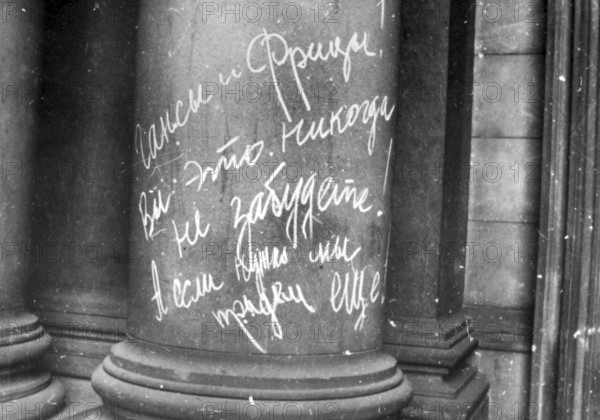 Гансы и Фрицы!
Вы это никогда
не забудете!
А если нужно мы
придем ещё!